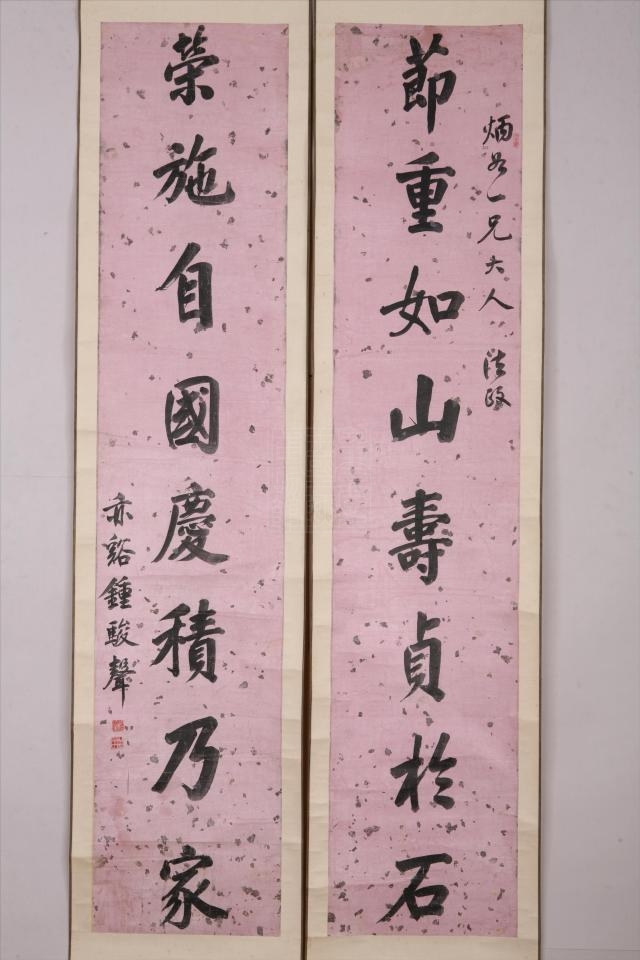 炳君一兄大人 法政
節重如山壽貞於石
榮施自國慶積乃家
亦谿鍾駿聲